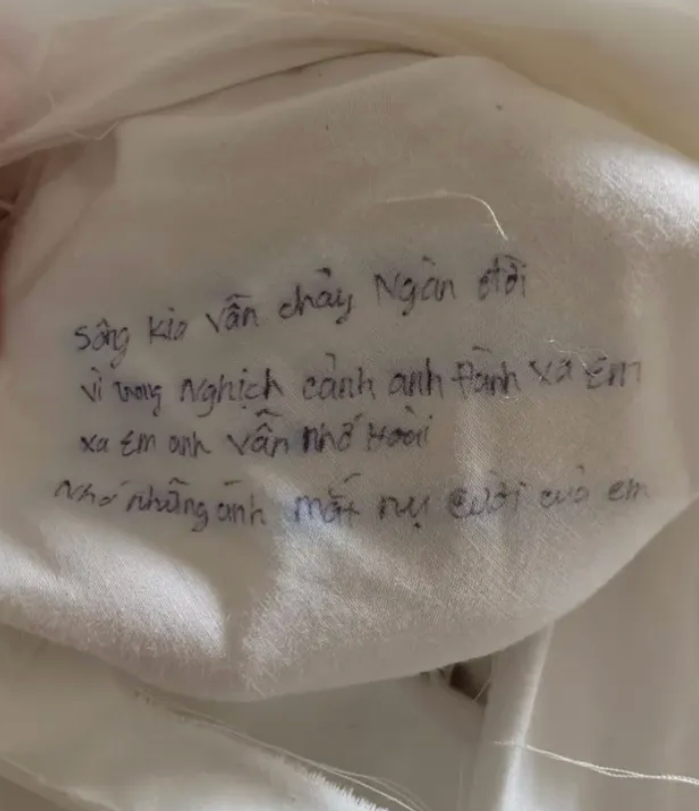 sông kia vẫn chảy Ngàn đời
vì trong nghịch cảnh anh đành xa Em
xa Em anh vẫn nhớ Hoài
Nhớ những ánh mắt nụ cười của em